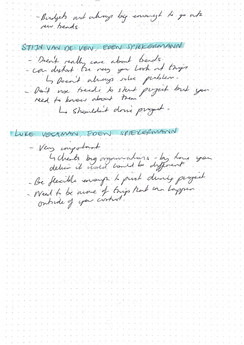 - Budgets not always big enough to go into
new trends.
STIJN VAN DE VEN, EDEN SPIEKERMANN
- Doesn't really care about trends
- Can distort the way you look at things
↳ Doesn't always solve problem.
- Don't use trends to start project but you
need to know about them
↳ Shouldn't drive project.
LUKE VOORMAN, EDEN SPIEKERMANN
- Very important
↳ Clients big organisations - by how you
deliver it could be different
- Be flexible enough to pivot during project
- Need to be aware of things that can happen
outside of your control.